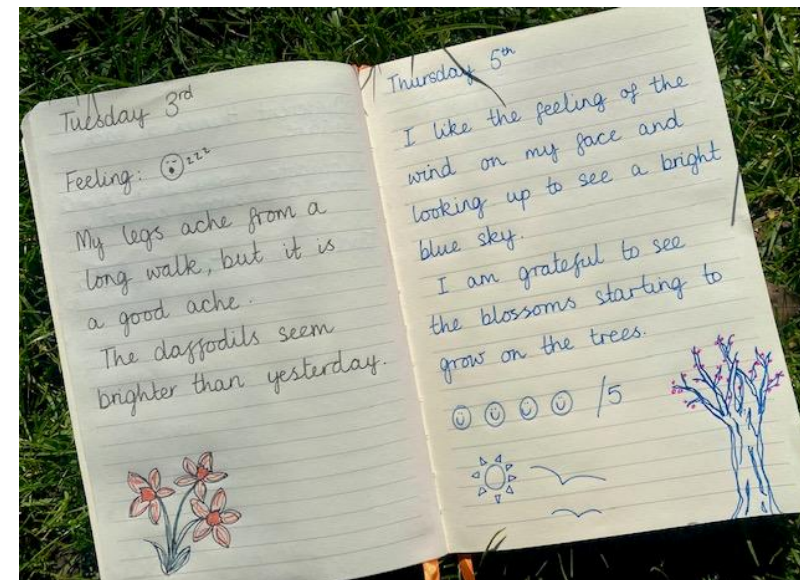 Tuesday 3rd
Feeling: zzz
My legs ache from a
long walk, but it is
a good ache.
The daffodils seem
brighter than yesterday.
Thursday 5th
I like the feeling of the
wind on my face and
looking up to see a bright
blue sky.
I am grateful to see
the blossoms starting to
grow on the trees.
/5